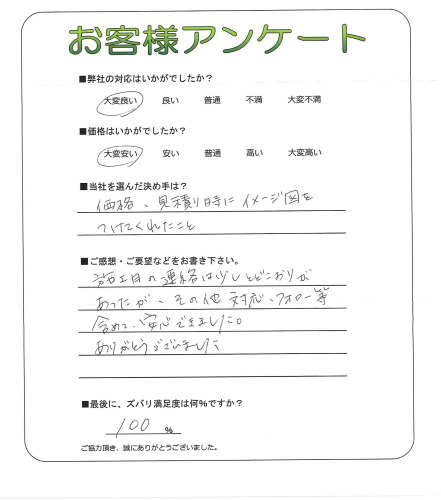 お客様アンケート
■弊社の対応はいかがでしたか？
大変良い 良い 普通 不満 大変不満
■価格はいかがでしたか？
大変安い 安い 普通 高い 大変高い
■当社を選んだ決め手は？
価格、見積り時にイメージ図を
つけてくれたこと
■ご感想・ご要望などをお書き下さい。
着工日の連絡は少しとどこおりが
あったが、その他 対応、フォロー等
含めて、安心できました。
ありがとうございました
■最後に、ズバリ満足度は何％ですか？
100 %
ご協力頂き、誠にありがとうございました。